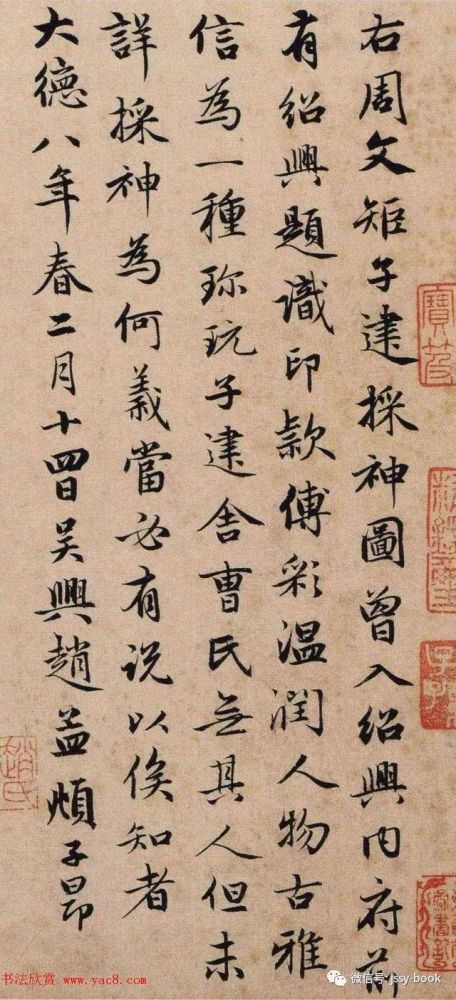 右周文矩子建採神圖曾入紹興内府並
有紹興題識印款傅彩温潤人物古雅
信為一種珎玩子建舍曺氏無其人但未
詳採神為何義當必有説以俟知者
大德八年春二月十四日吴興趙孟頫子昂
趙氏
书法欣赏 www.yac8.com
微信号: jssy-book